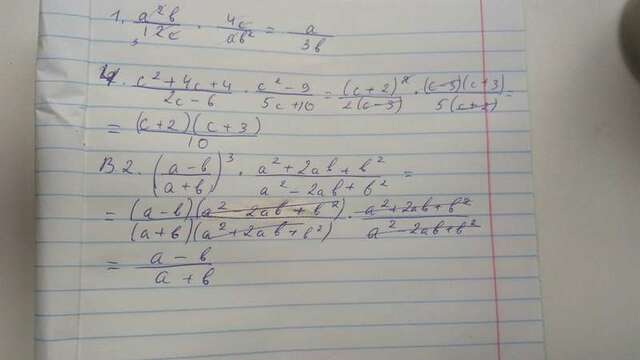 1. a²b/12c · 4c/ab² = a/3b
3
4. c²+4c+4/2c-6 · c²-9/5c+10 = (c+2)²/2(c-3) · (c-3)(c+3)/5(c+2) =
= (c+2)(c+3)/10
B.2. (a-b/a+b)³ · a²+2ab+b²/a²-2ab+b² =
= (a-b)(a²-2ab+b²)/(a+b)(a²+2ab+b²) · a²+2ab+b²/a²-2ab+b²
= a-b/a+b